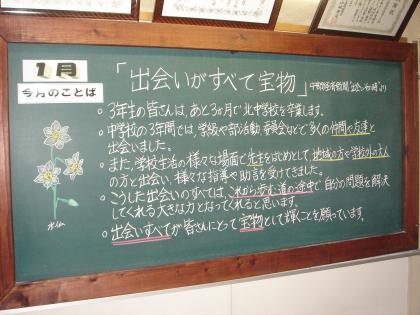 1月
今月のことば
「出会いがすべて宝物」
。3年生の皆さんは、あと3か月で北中学校を卒業します。
。中学校の3年間では、学級や部活動、委員会などで多くの仲間や友達と
出会いました。
。また、学校生活の様々な場面で先生をはじめとして、地域の方や学校外の方
の方と出会い、様々な指導や助言を受けてきました。
。こうした出会いのすべては、これから歩む道の途中で自分の問題を解決
してくれる大きな力となってくれると思います。
。出会いすべてが皆さんにとって宝物として輝くことを願っています。